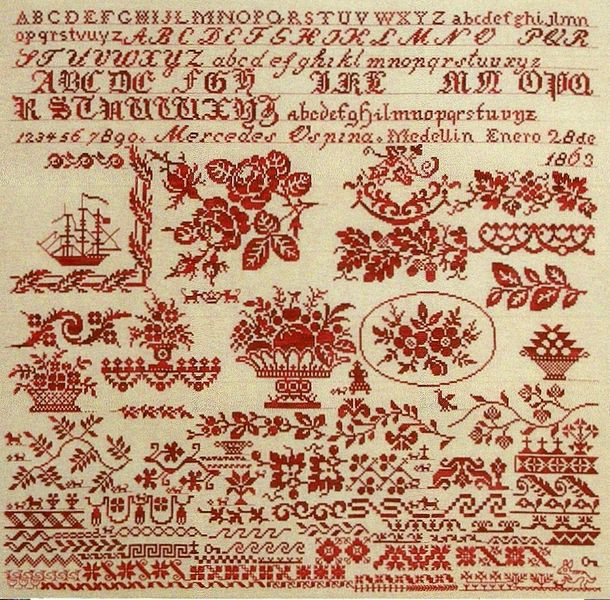 ABCDEFGHIJLMNOPQRSTUVWXYZ abcdefghijlmn
opqrstvuyz ABCDEFGHIKLMNO PQR
STUVWXYZ abcdefghiklmnopqrstuvxyz
ABCDC FGH IKL MN OPQ
R STAUWXYZ abcdefghilmnopqrstuvyz
1234567890. Mercedes Ospina. Medellin Enero 28 de
1863